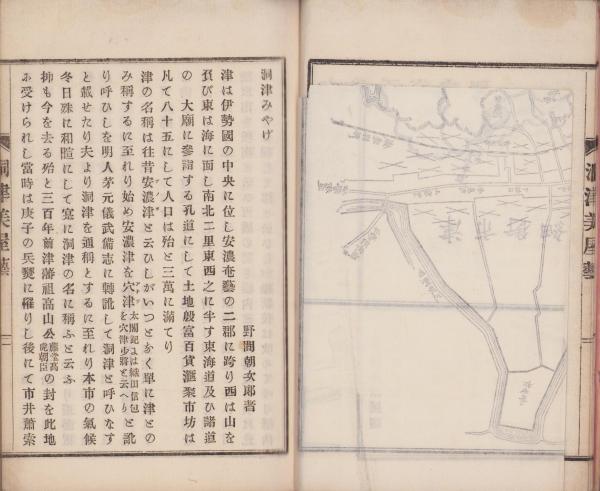 洞津みやげ
野間朝次郎著
津は伊勢國の中央に位し安濃奄藝の二郡に跨り西は山を
負び東は海に面し南北二里東西之に半す東海道及ひ諸道
の　大廟に參詣する孔道にして土地殷富百貨滙聚市坊は
凡て八十五にして人口は殆と三萬に滿てり
津の名稱は往昔安濃津と云ひしがいつとなく單に津との
み稱するに至れり始め安濃津を穴津太閤記よは織田信包を穴津少將と云へりと訛
り呼ひしを明人茅元儀武備志に轉訛して洞津と呼ひなす
と載せたり夫より洞津を通稱とするに至れり本市の氣候
冬日殊に和暄にして寔に洞津の名に稱ふと云ふ
抑も今を去る殆と三百年前津藩祖高山公藤堂高虎朝臣の封を此地
ふ受けられし當時は庚子の兵燹に罹りし後にて市井蕭索
洞津美屋藝
洞津美屋藝